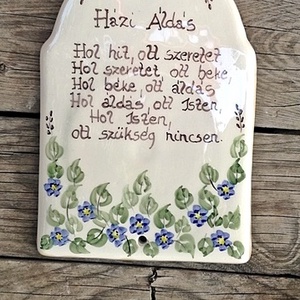 Házi Áldás
Hol hit, ott szeretet,
Hol szeretet, ott béke,
Hol béke, ott áldás
Hol áldás, ott Isten,
Hol Isten,
ott szükség nincsen.